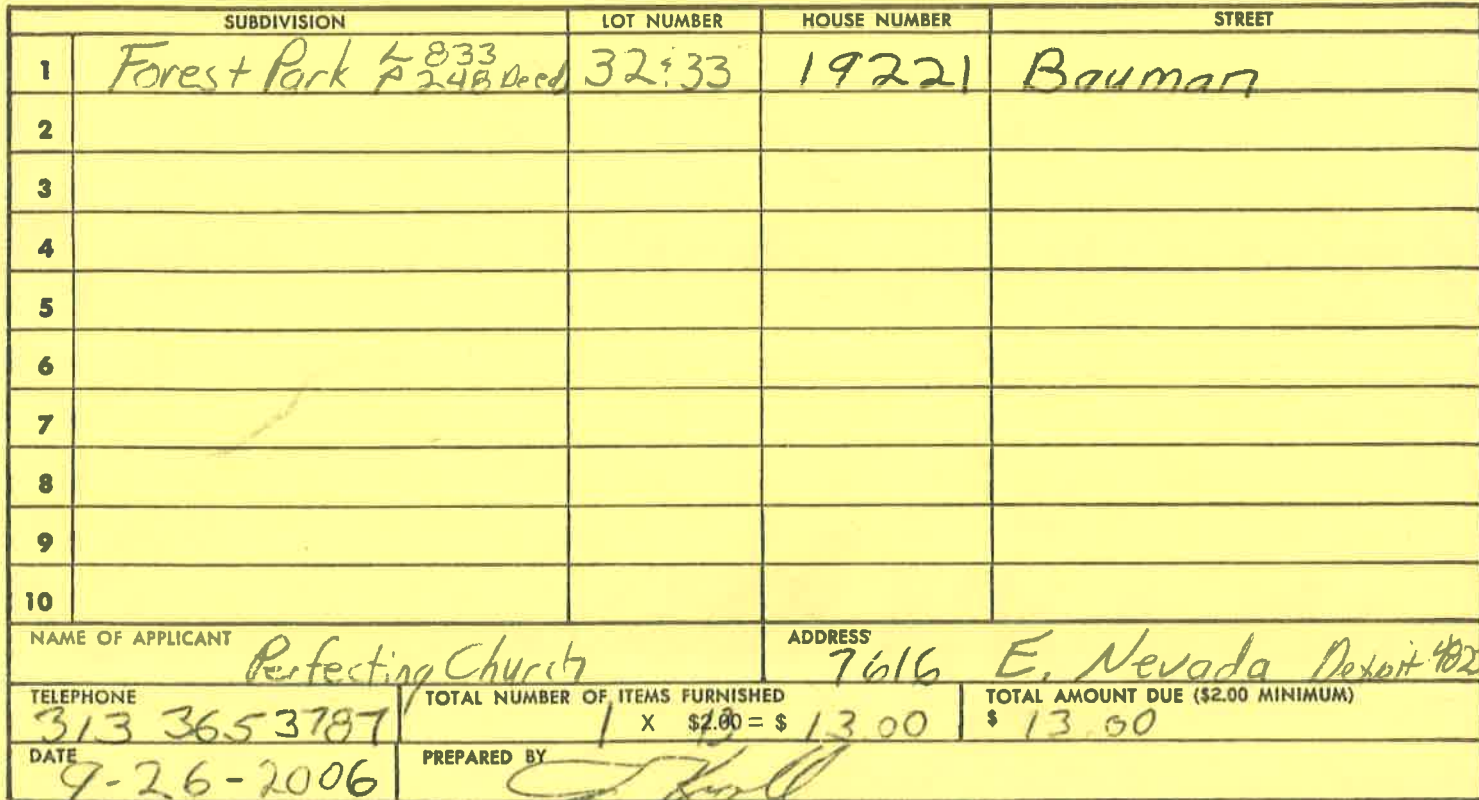 SUBDIVISION LOT NUMBER HOUSE NUMBER STREET
1 Forest Park L 833 P 248 Deed 32 & 33 19221 Bauman
2
3
4
5
6
7
8
9
10
NAME OF APPLICANT Perfecting Church ADDRESS 7616 E. Nevada 482
TELEPHONE 313 365 3787 TOTAL NUMBER OF ITEMS FURNISHED 1 X $2.00 13 = $ 13.00 TOTAL AMOUNT DUE ($2.00 MINIMUM) $ 13.00
DATE 9-26-2006 PREPARED BY